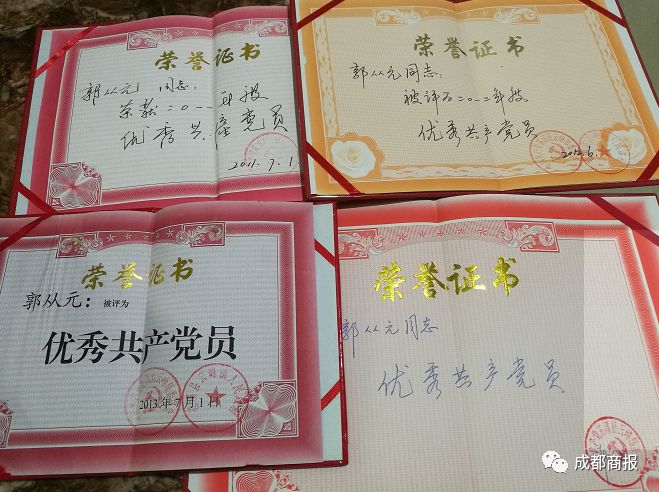 荣誉证书
郭从元 同志:
荣获二0一一年被
优秀共产党员
2011.7.1
荣誉证书
郭从元同志:
被评为二0一二年度
优秀共产党员
2012.6.
荣誉证书
郭从元: 被评为
优秀共产党员
2013年7月1日
荣誉证书
郭从元同志
优秀共产党员
成都商报